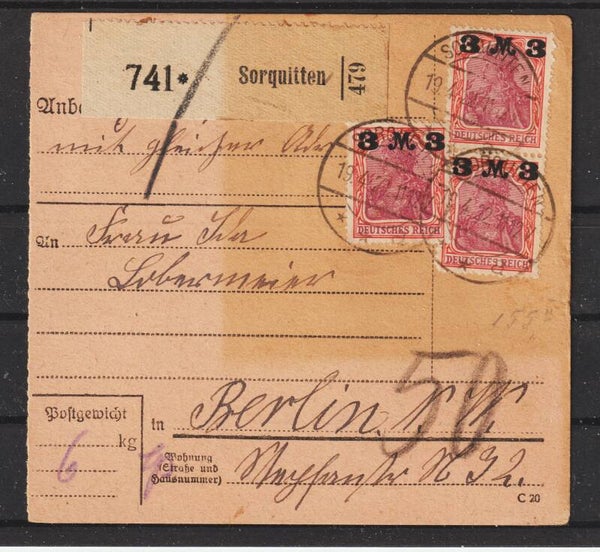 741*
Sorquitten
479
3 M 3
DEUTSCHES REICH
3 M 3
DEUTSCHES REICH
3 M 3
DEUTSCHES REICH
Anb
mit gleicher
An
Frau Ida
Lobermeier
50
Postgewicht
kg
6
in
Berlin
Wohnung
(Straße und
Hausnummer)
C 20